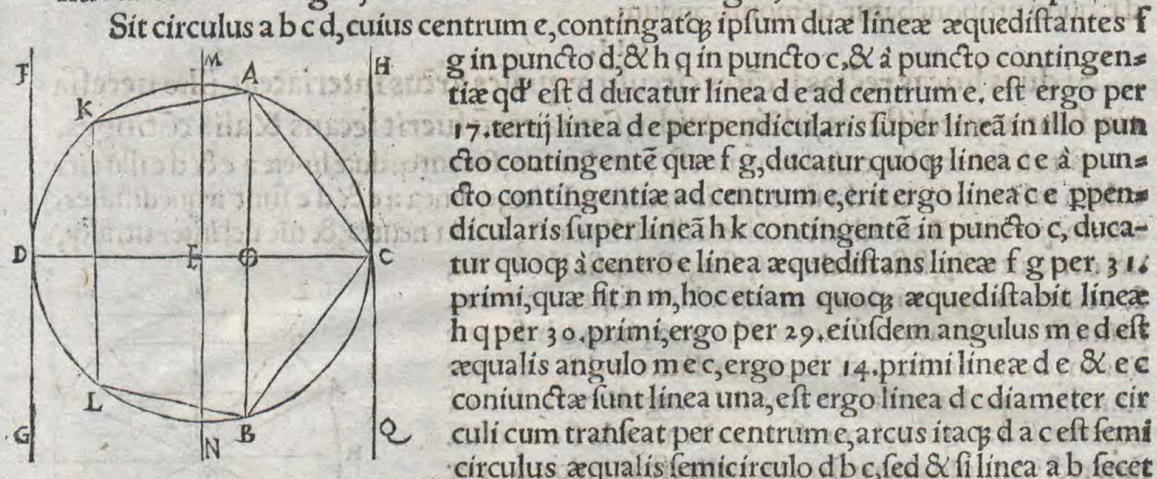 Sit circulus a b c d, cuius centrum e, contingatq́ꝫ ipsum duæ lineæ æquedistantes f
g in puncto d, & h q in puncto c, & à puncto contingen=
tiæ qd' est d ducatur linea d e ad centrum e. est ergo per
17. tertij linea d e perpendicularis super lineã in illo pun
cto contingentẽ quæ f g, ducatur quoqꝫ linea c e à pun=
cto contingentiæ ad centrum e, erit ergo linea c e ꝑpen=
dicularis super lineã h k contingentẽ in puncto c, duca-
tur quoqꝫ à centro e linea æquedistans lineæ f g per 31.
primi, quæ sit n m, hoc etiam quoqꝫ æquedistabit lineæ
h q per 30. primi, ergo per 29. eiusdem angulus m e d est
æqualis angulo m e c, ergo per 14. primi lineæ d e & e c
coniunctæ sunt linea una, est ergo linea d c diameter cir
culi cum transeat per centrum e, arcus itaqꝫ d a c est semi
circulus æqualis semicirculo d b c, sed & si linea a b secet
F
M
A
H
K
D
E
O
C
L
G
N
B
Q